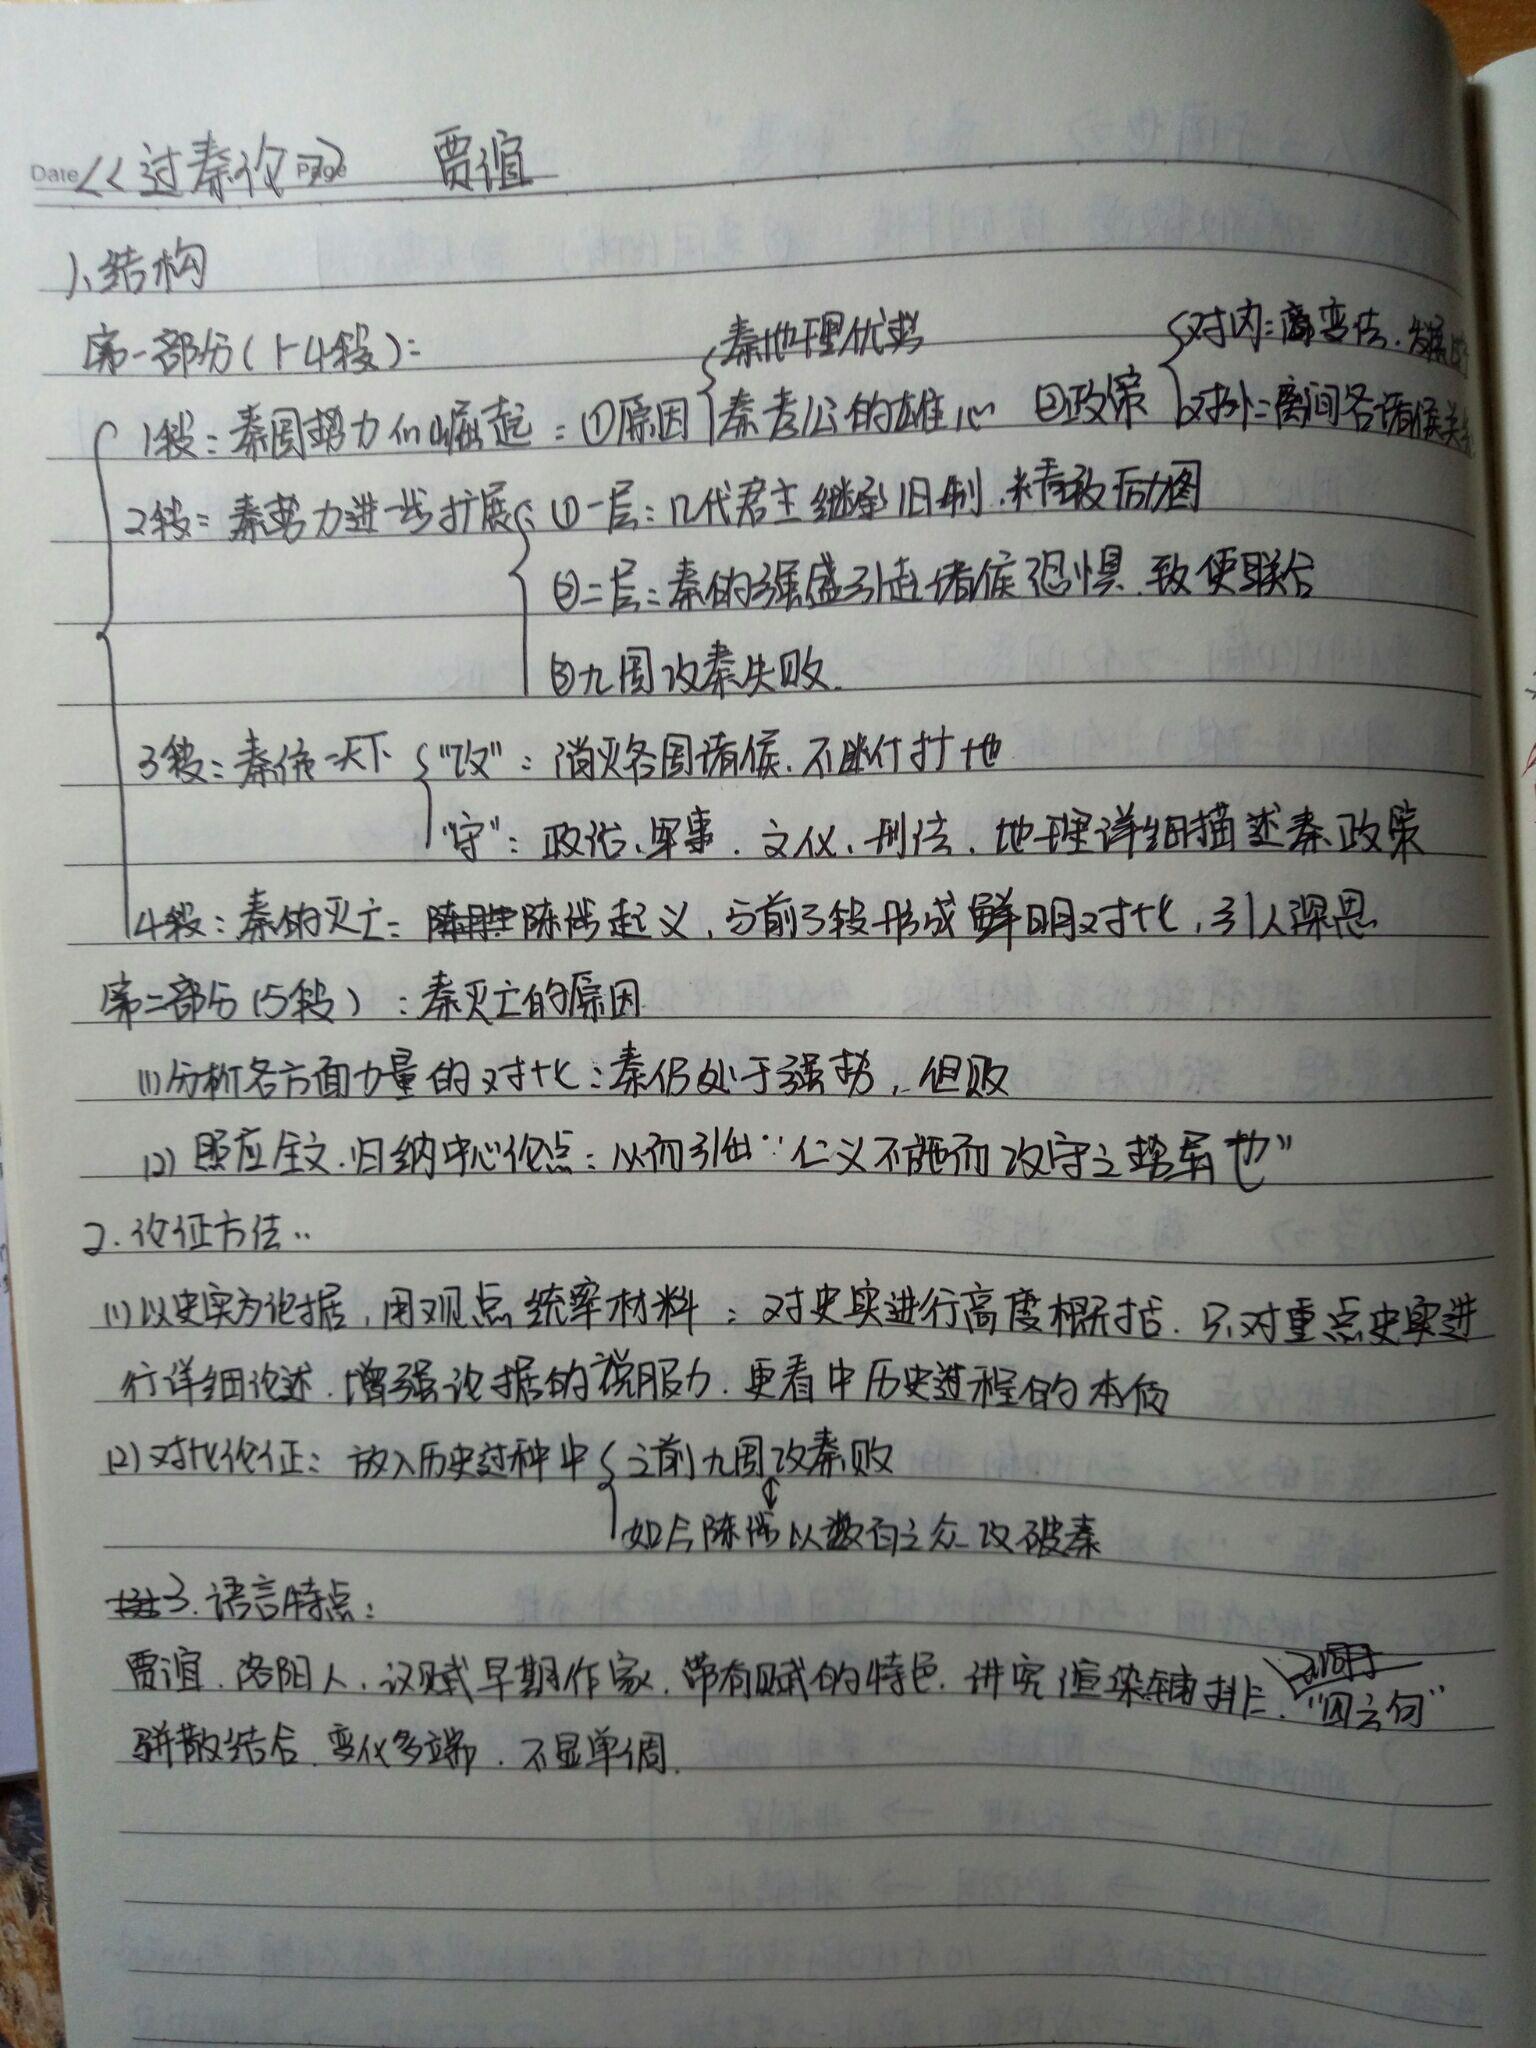 Date 《过秦论》 Page 贾谊
1、结构
第一部分(1-4段):
秦地理优势
对内:商变法、发展
1段:秦国势力的崛起:①原因 秦孝公的雄心 ②政策 对外:离间各诸侯关系
2段:秦势力进一步扩展:①一层:几代君主继承旧制、
②二层:秦的强盛引起诸侯恐惧、致使联合
③九国攻秦失败.
3段:秦统一天下 "攻":消灭各国诸侯、不断打地
"守":政治、军事、文化、刑法、地理详细描述秦政策
4段:秦的灭亡: 陈涉起义、与前3段形成鲜明对比,引人深思
第二部分(5段):秦灭亡的原因
(1)分析各方面力量的对比:秦仍处于强势,但败
(2)照应全文、归纳中心论点:从而引出:"仁义不施而攻守之势异也"
2.论证方法:
(1)以史实为论据,用观点统率材料:对史实进行高度概括、只对重点史实进
行详细论述、增强论据的说服力、更看中历史进程的本质
(2)对比论证:放入历史过程中 之前九国攻秦败
↕
如今陈涉以数百之众攻破秦
3.语言特点:
贾谊、洛阳人、汉赋早期作家、带有赋的特色、讲究渲染铺排、"四六句"
骈散结合、变化多端、不显单调.